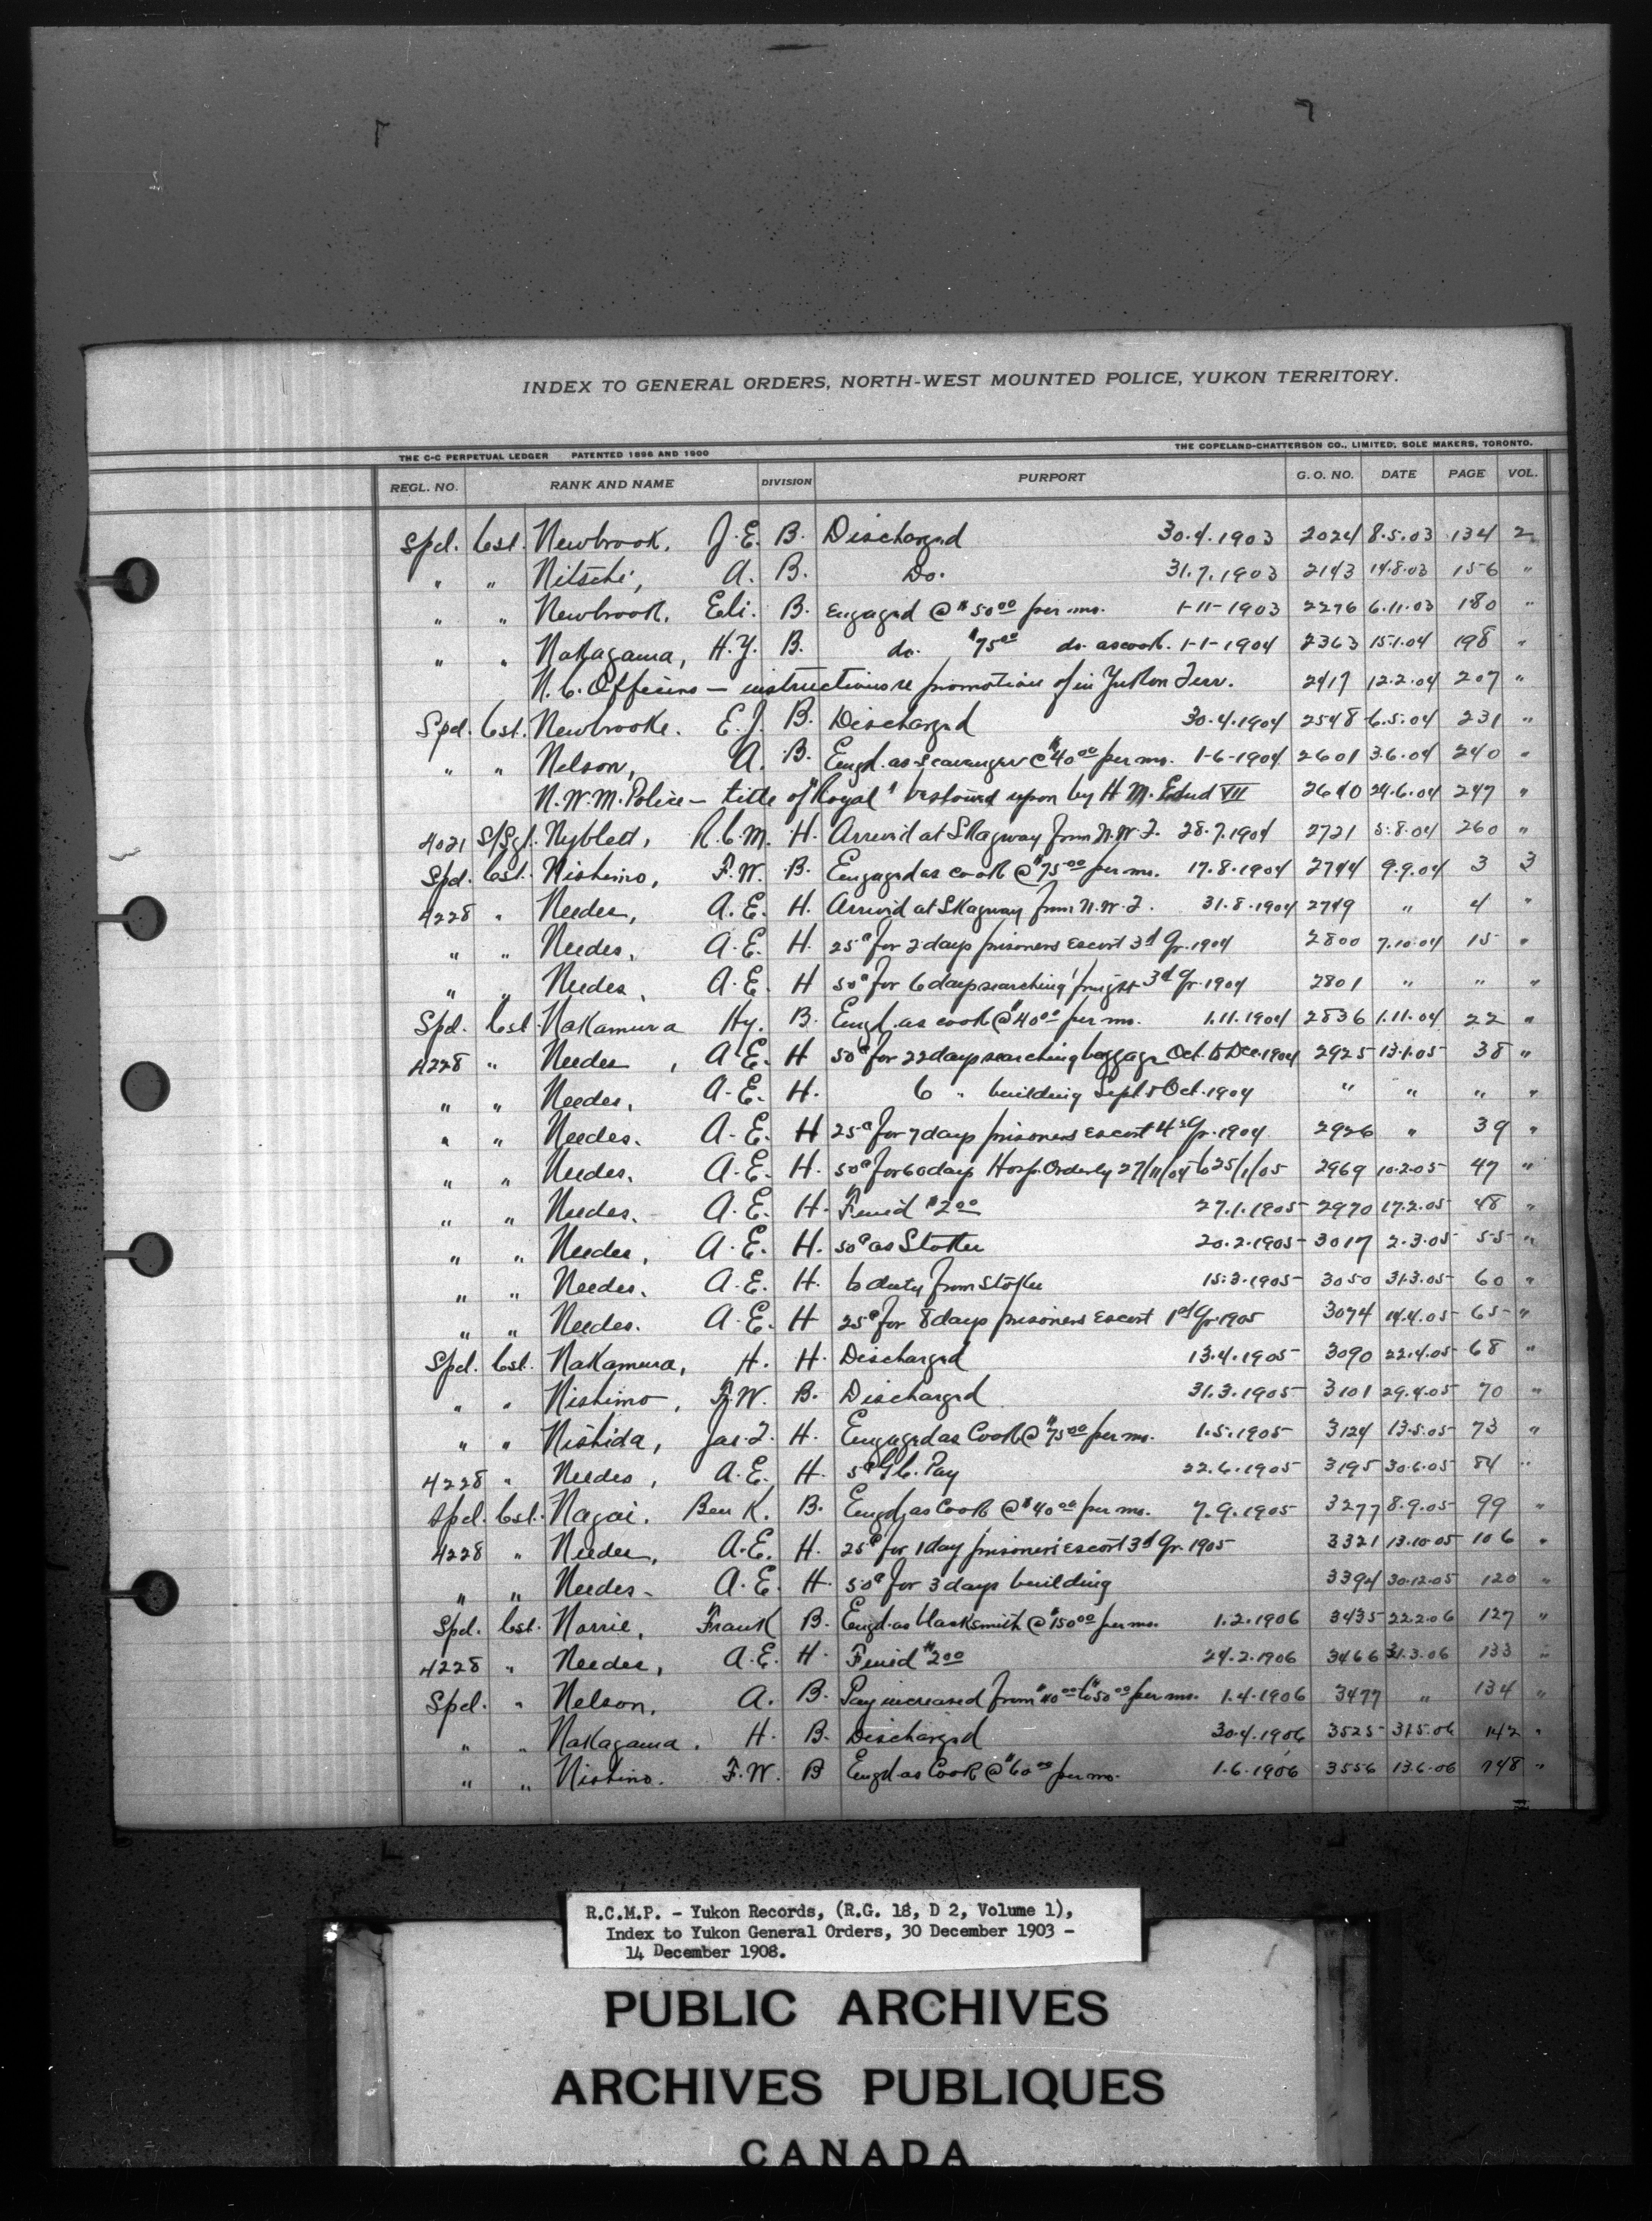 INDEX TO GENERAL ORDERS, NORTH-WEST MOUNTED POLICE, YUKON TERRITORY.
THE C-C PERPETUAL LEDGER PATENTED 1896 AND 1900 THE COPELAND-CHATTERSON CO., LIMITED, SOLE MAKERS, TORONTO.
REGL. NO. RANK AND NAME DIVISION PURPORT G. O. NO. DATE PAGE VOL.
Spcl. Cst. Newbrook, J.E. B. Discharged 30.4.1903 2024 8.5.03 134 2
" " Nitschi, A. B. Do. 31.7.1903 2143 14.8.03 156 "
" " Newbrook, Eli. B. Engaged @ $50.00 per mo. 1-11-1903 2276 6.11.03 180 "
" " Nakagama, H.Y. B. do. $75.00 do. as cook. 1-1-1904 2363 15.1.04 198 "
N.C. Officers — instructions re promotion of in Yukon Terr. 2417 12.2.04 207 "
Spcl. Cst. Newbrooke. E.J. B. Discharged 30.4.1904 2548 6.5.04 231 "
" " Nelson, A. B. Engd. as scavenger @ $40.00 per mo. 1-6-1904 2601 3.6.04 240 "
N.W.M. Police — title of "Royal" bestowed upon by H.M. Edwd VII 2640 24.6.04 247 "
4021 S/Sgt. Nyblett, R.C.M. H. Arrived at Skagway from N.W.T. 28.7.1904 2721 5.8.04 260 "
Spcl. Cst. Nishimo, F.W. B. Engaged as cook @ $75.00 per mo. 17.8.1904 2744 9.9.04 3 3
4228 " Needes, A.E. H. Arrived at Skagway from N.W.T. 31.8.1904 2749 " 4 "
" " Needes, A.E. H. 25¢ for 2 days prisoners escort 3d Qr. 1904 2800 7.10.04 15 "
" " Needes, A.E. H 50¢ for 6 days searching freight 3d Qr. 1904 2801 " " "
Spcl. Cst. Nakamura Hy. B. Engd. as cook @ $40.00 per mo. 1.11.1904 2836 1.11.04 22 "
4228 " Needes, A.E. H 50¢ for 22 days searching baggage Oct. to Dec. 1904 2925 13.1.05 38 "
" " Needes, A.E. H. 6 " building Sept & Oct. 1904 " " " "
" " Needes. A.E. H 25¢ for 7 days prisoners escort 4th Qr. 1904 2926 " 39 "
" " Needes. A.E. H. 50¢ for 60 days Hosp. Orderly 27/11/04 to 25/1/05 2969 10.2.05 47 "
" " Needes. A.E. H. Fined $2.00 27.1.1905 2970 17.2.05 48 "
" " Needes, A.E. H. 50¢ as Stoker 20.2.1905 3017 2.3.05 55 "
" " Needes. A.E. H. to duty from Stoker 15.3.1905 3050 31.3.05 60 "
" " Needes. A.E. H 25¢ for 8 days prisoners escort 1st Qr. 1905 3074 14.4.05 65 "
Spcl. Cst. Nakamura, H. H. Discharged 13.4.1905 3090 22.4.05 68 "
" " Nishimo, F.W. B. Discharged 31.3.1905 3101 29.4.05 70 "
" " Nishida, Jas. T. H. Engaged as Cook @ $75.00 per mo. 1.5.1905 3124 13.5.05 73 "
4228 " Needes, A.E. H. 5¢ G.C. Pay 22.6.1905 3195 30.6.05 84 "
Spcl. Cst. Nagai. Ben K. B. Engd. as Cook @ $40.00 per mo. 7.9.1905 3277 8.9.05 99 "
4228 " Needes, A.E. H. 25¢ for 1 day prisoners escort 3d Qr. 1905 3321 13.10.05 106 "
" " Needes - A.E. H. 50¢ for 3 days building 3394 30.12.05 120 "
Spcl. Cst. Norrie, Frank B. Engd. as blacksmith @ $150.00 per mo. 1.2.1906 3435 22.2.06 127 "
4228 " Needes, A.E. H. Fined $2.00 24.2.1906 3466 31.3.06 133 "
Spcl. " Nelson, A. B. Pay increased from $40.00 to $50.00 per mo. 1.4.1906 3477 " 134 "
" " Nakagama. H. B. Discharged 30.4.1906 3525 31.5.06 142 "
" " Nishino. F.W. B Engd. as Cook @ $60.00 per mo. 1.6.1906 3556 13.6.06 148 "
R.C.M.P. - Yukon Records, (R.G. 18, D 2, Volume 1),
Index to Yukon General Orders, 30 December 1903 -
14 December 1908.
PUBLIC ARCHIVES
ARCHIVES PUBLIQUES
CANADA